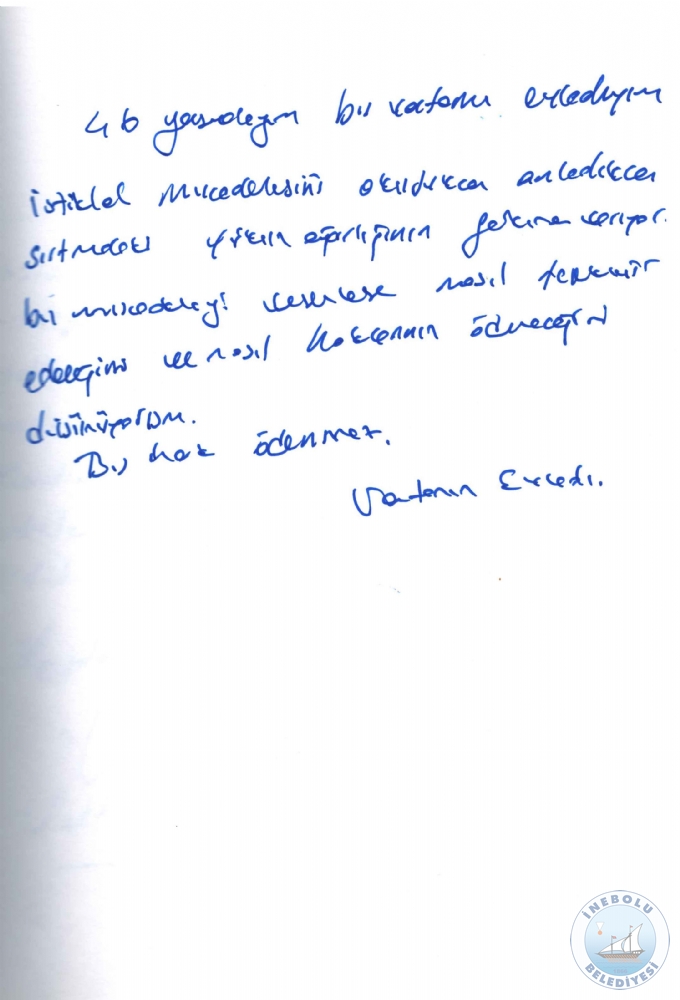 46 yaşındayım bir vatanın evladıyım
İstiklal Mücadelesini okudukça anladıkça
sırtındaki yükün ağırlığının farkına varıyor.
bu mücadeleyi nasıl
edeceğimi ve nasıl haklarının ödeneceğini
düşünüyorum.
Bu hak ödenmez.
Vatanın Evladı.
İNEBOLU
BELEDİYESİ